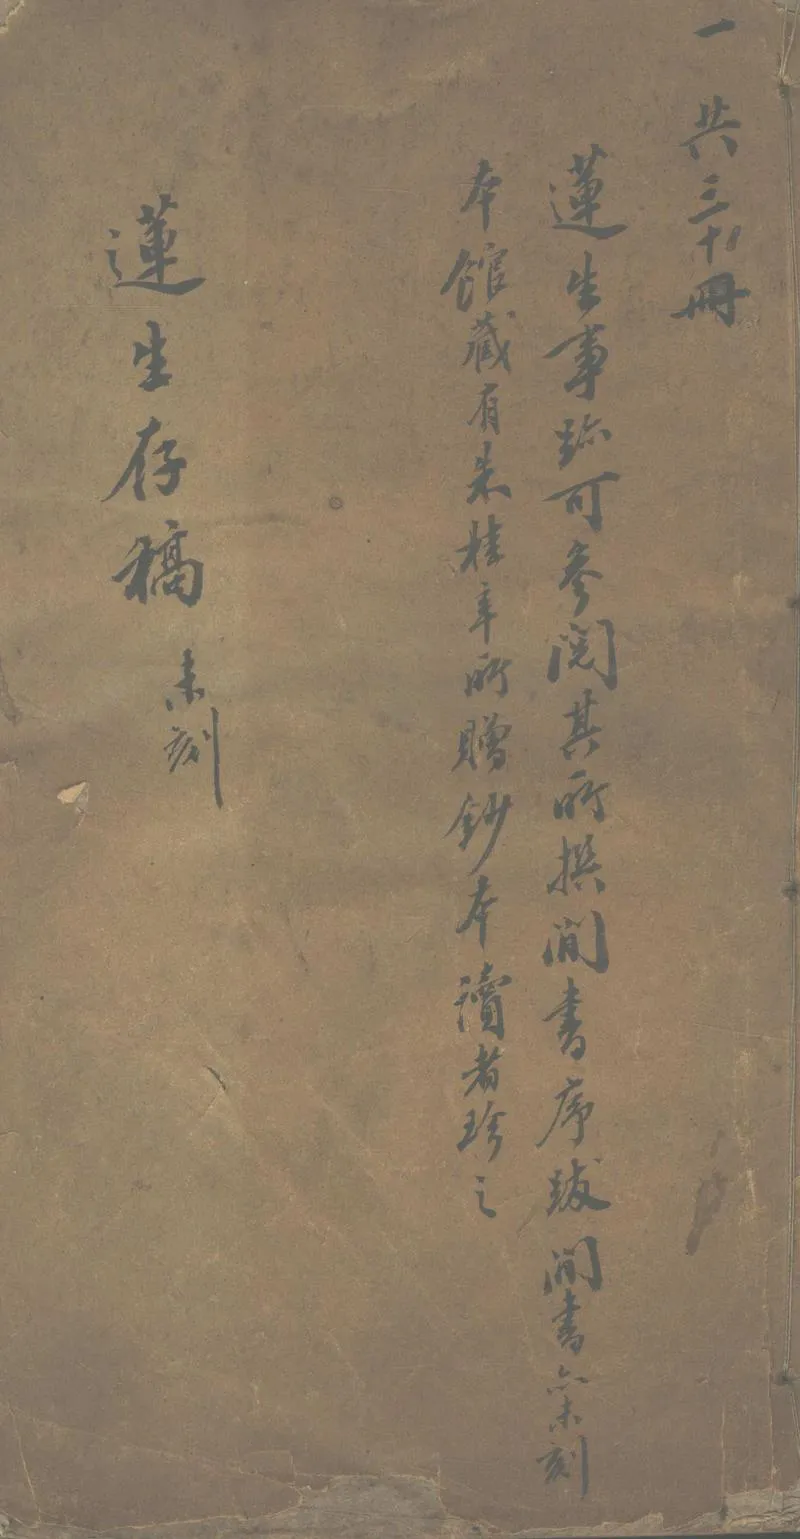 一 共三十冊
蓮生事跡可參閱其所撰閒書序跋 閒書亦未刻
本館藏有朱桂辛所贈鈔本讀者珍之
蓮生存稿 未刻